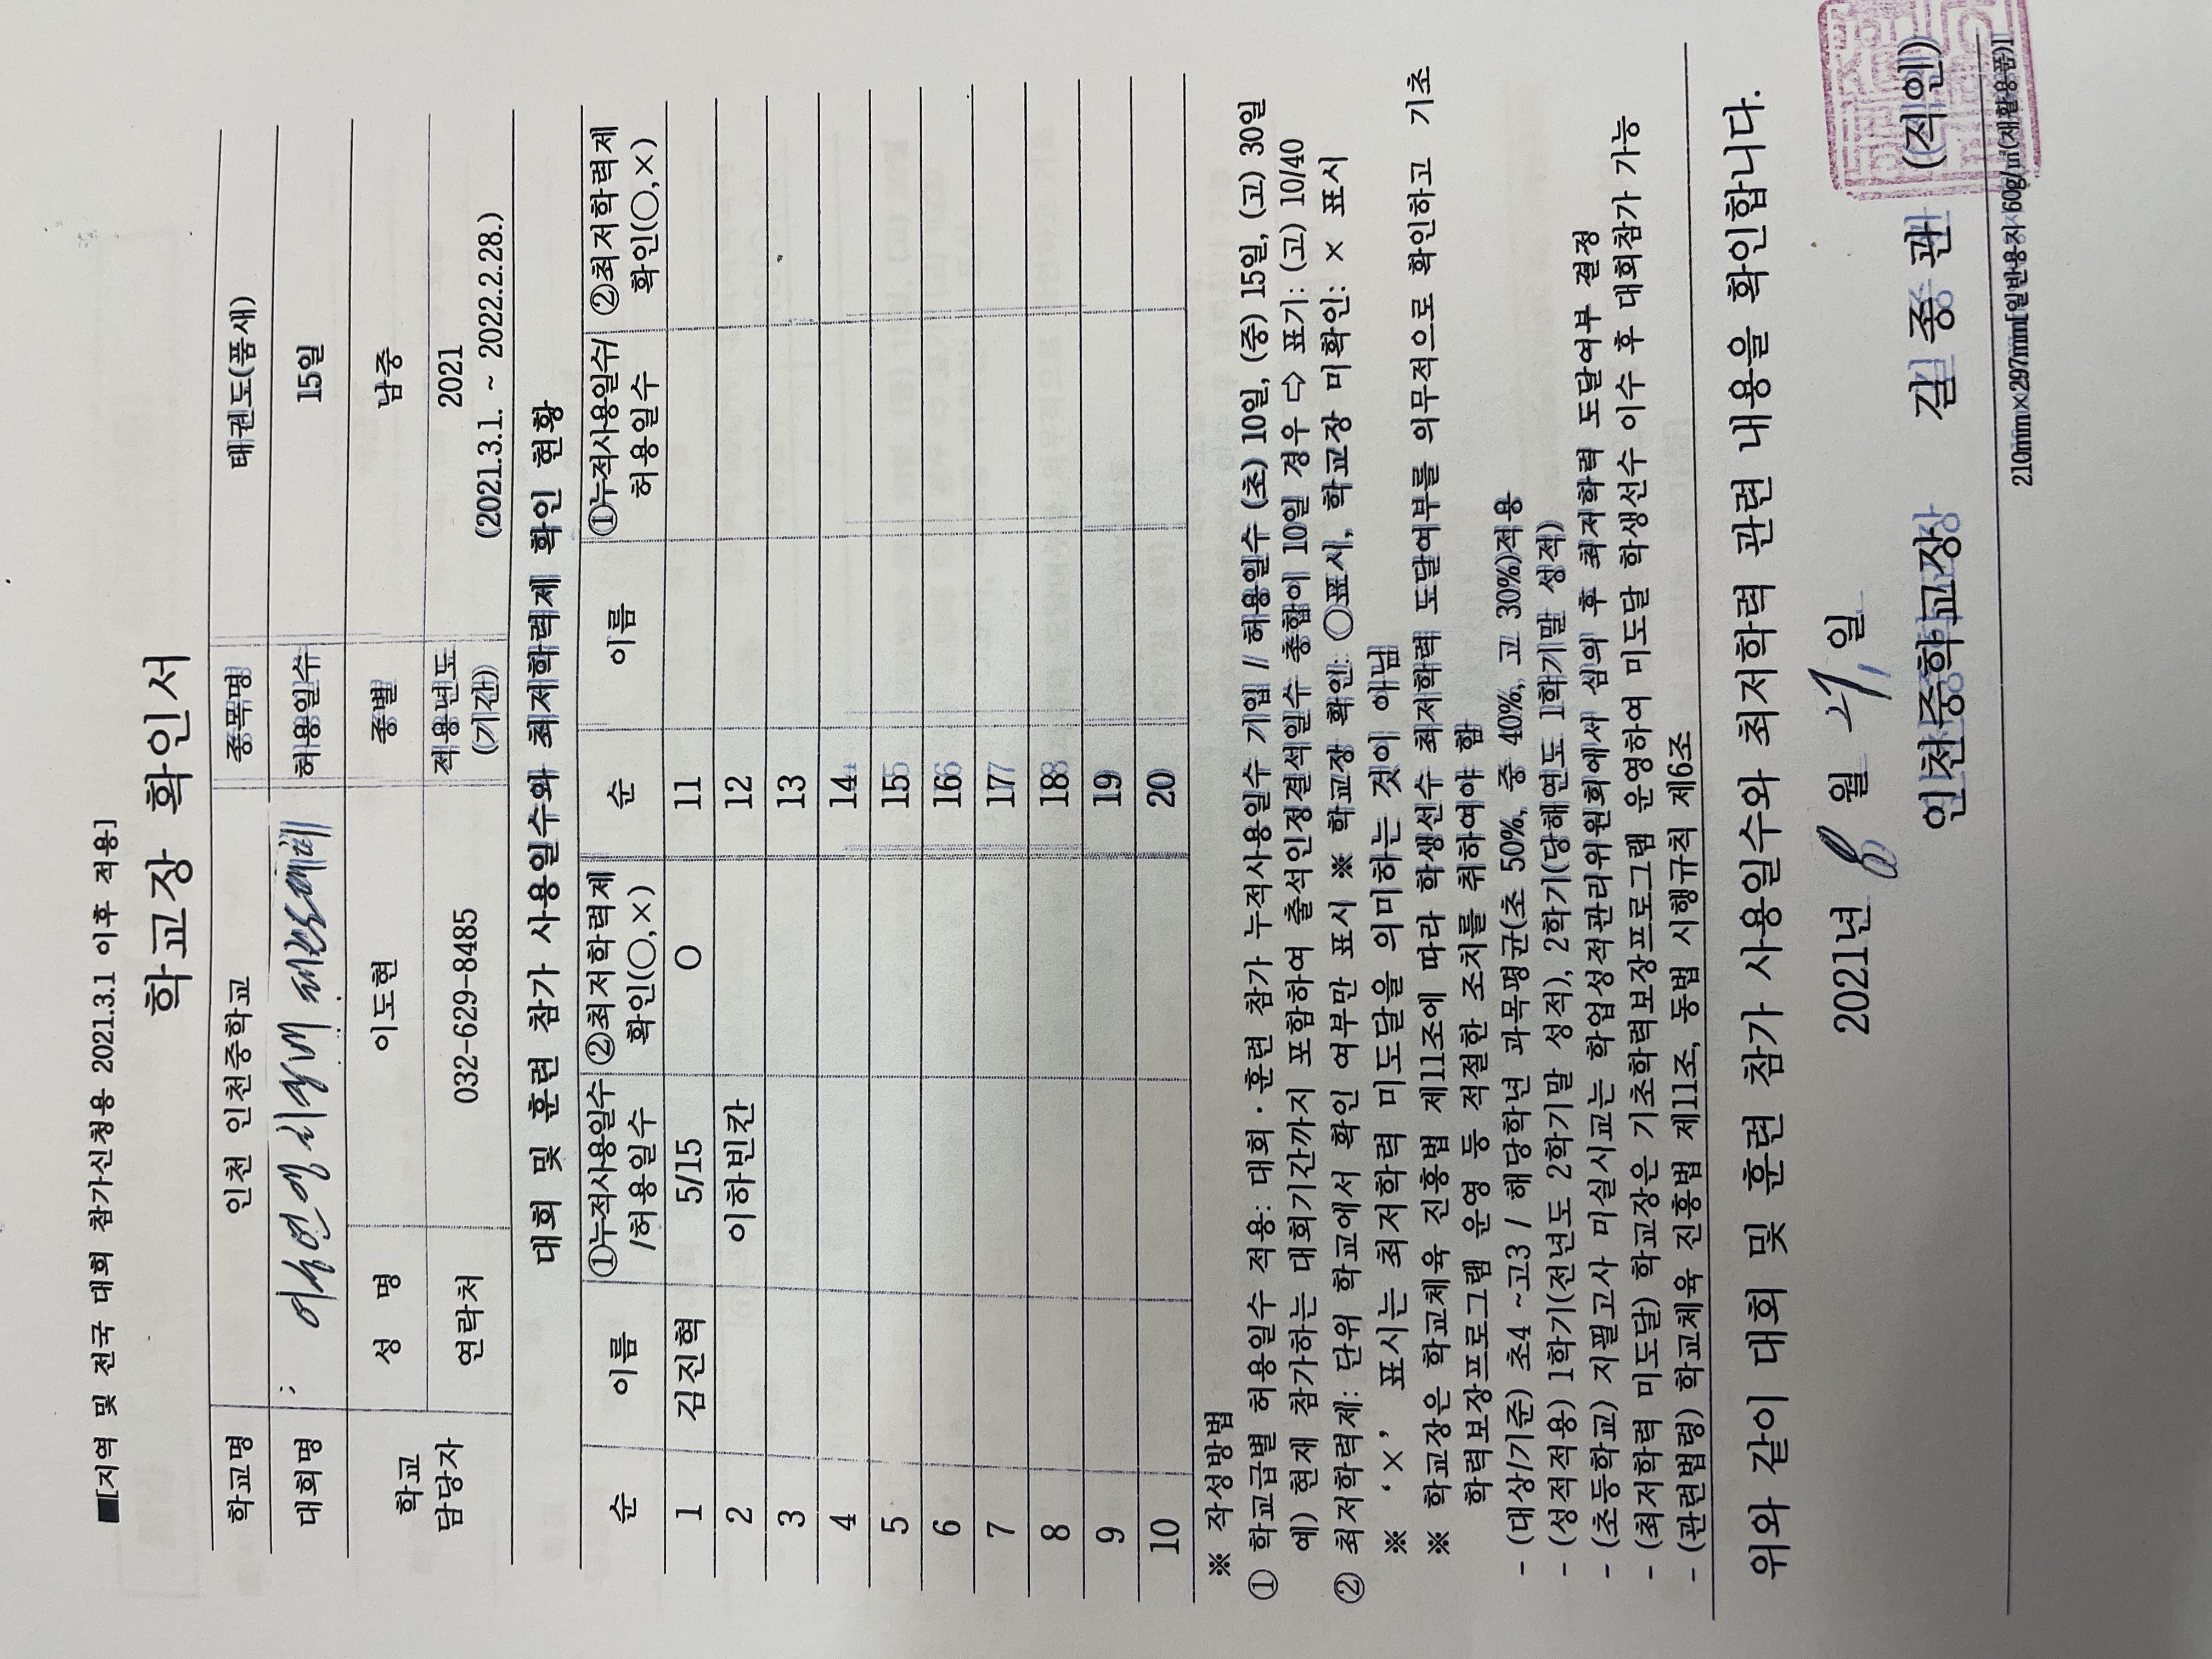 ■[지역 및 전국 대회 참가신청용 2021.3.1 이후 적용]
학교장 확인서
학교명 인천 인천중학교 종목명 태권도(품새)
대회명 허용일수 15일
학교 담당자 성 명 이도현 종별 남중
연락처 032-629-8485 적용년도 (기간) 2021 (2021.3.1. ~ 2022.2.28.)
대회 및 훈련 참가 사용일수와 최저학력제 확인 현황
순 이름 ①누적사용일수 /허용일수 ②최저학력제 확인(○,×) 순 이름 ①누적사용일수/ 허용일수 ②최저학력제 확인(○,×)
1 김진혁 5/15 ○ 11
2 이하빈칸 12
3 13
4 14
5 15
6 16
7 17
8 18
9 19
10 20
※ 작성방법
① 학교급별 허용일수 적용: 대회·훈련 참가 누적사용일수 기입 // 허용일수 (초) 10일, (중) 15일, (고) 30일
예) 현재 참가하는 대회기간까지 포함하여 출석인정결석일수 총합이 10일 경우 ⇨ 표기: (고) 10/40
② 최저학력제: 단위 학교에서 확인 여부만 표시 ※ 학교장 확인: ○표시, 학교장 미확인: × 표시
※ ‘×’ 표시는 최저학력 미도달을 의미하는 것이 아님
※ 학교장은 학교체육 진흥법 제11조에 따라 학생선수 최저학력 도달여부를 의무적으로 확인하고 기초
학력보장프로그램 운영 등 적절한 조치를 취하여야 함
- (대상/기준) 초4 ~고3 / 해당학년 과목평균(초 50%, 중 40%, 고 30%)적용
- (성적적용) 1학기(전년도 2학기말 성적), 2학기(당해연도 1학기말 성적)
- (초등학교) 지필고사 미실시교는 학업성적관리위원회에서 심의 후 최저학력 도달여부 결정
- (최저학력 미도달) 학교장은 기초학력보장프로그램 운영하여 미도달 학생선수 이수 후 대회참가 가능
- (관련법령) 학교체육 진흥법 제11조, 동법 시행규칙 제6조
위와 같이 대회 및 훈련 참가 사용일수와 최저학력 관련 내용을 확인합니다.
2021년 8 월 일
인천중학교장 길 종 관 (직인)
210mm×297mm[일반용지 60g/㎡(재활용품)]